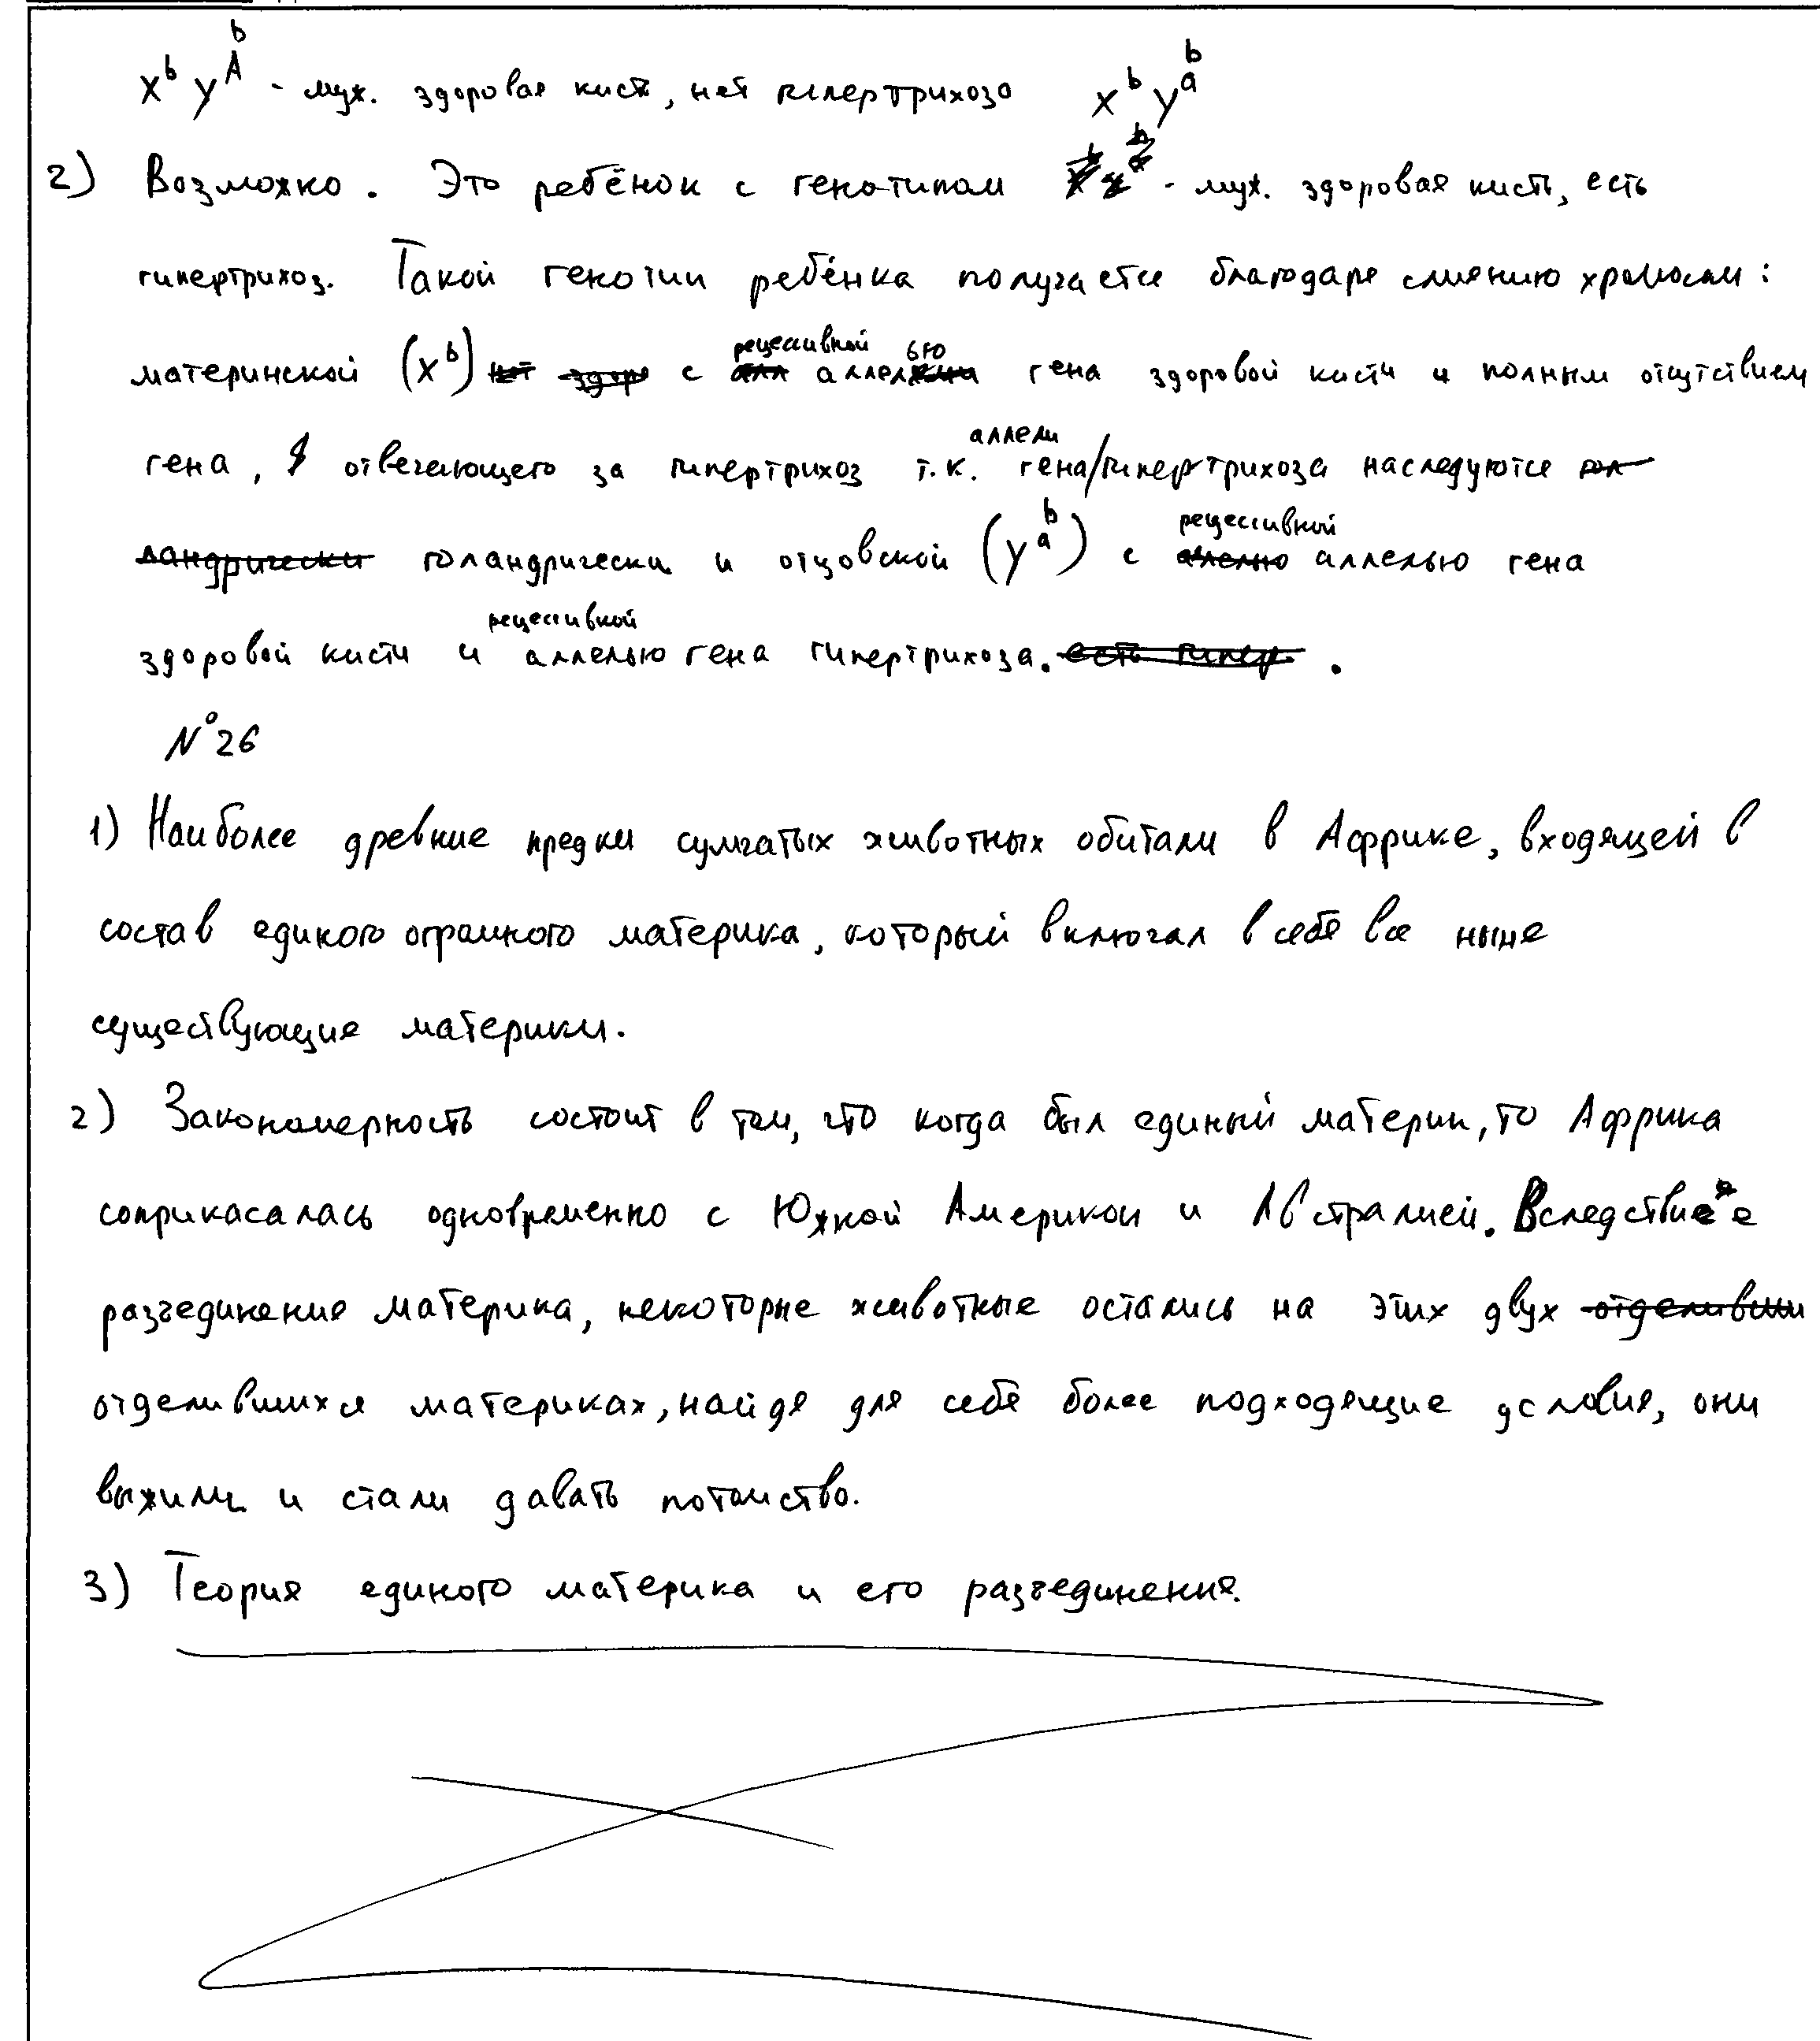 X^b Y^A^b - муж. здоровая кисть, нет гипертрихоза X^b Y^a^b
2) Возможно. Это ребёнок с генотипом - муж. здоровая кисть, есть
гипертрихоз. Такой генотип ребёнка получается благодаря слиянию хромосом:
материнской (X^b) с рецессивной аллелью гена здоровой кисти и полным отсутствием
гена, отвечающего за гипертрихоз т.к. аллели гена/гипертрихоза наследуются
голандрически и отцовской (Y^a^b) с рецессивной аллелью гена
здоровой кисти и рецессивной аллелью гена гипертрихоза.
№26
1) Наиболее древние предки сумчатых животных обитали в Африке, входящей в
состав единого огромного материка, который включал в себя все ныне
существующие материки.
2) Закономерность состоит в том, что когда был единый материк, то Африка
соприкасалась одновременно с Южной Америкой и Австралией. Вследствие
разъединения материка, некоторые животные остались на этих двух
отделившихся материках, найдя для себя более подходящие условия, они
выжили и стали давать потомство.
3) Теория единого материка и его разъединения.